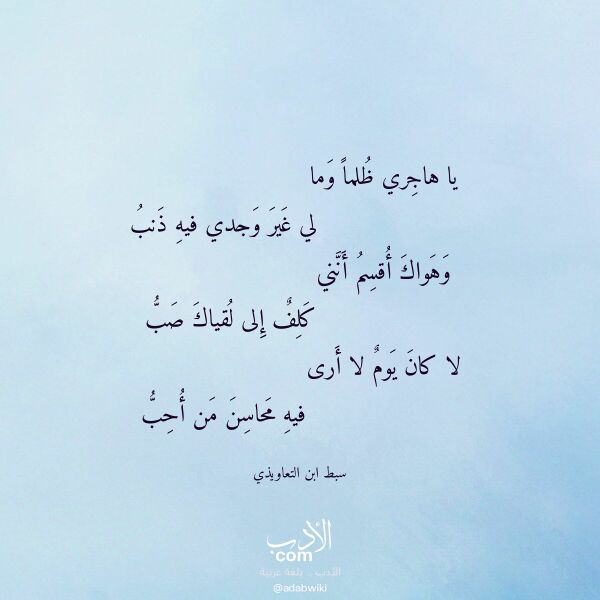 يا هاجِري ظُلماً وَما
لي غَيرَ وَجدي فيهِ ذَنبُ
وَهَواكَ أُقسِمُ أَنَّني
كَلِفٌ إِلى لُقياكَ صَبُّ
لا كانَ يَومٌ لا أَرى
فيهِ مَحاسِنَ مَن أُحِبُّ
سبط ابن التعاويذي
الأدب
com
الأدب .. بلغة عربية
@adabwiki